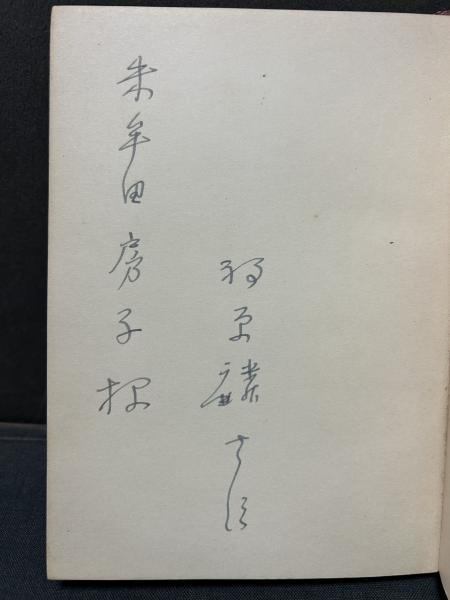 福原麟太郎
朱牟田房子様